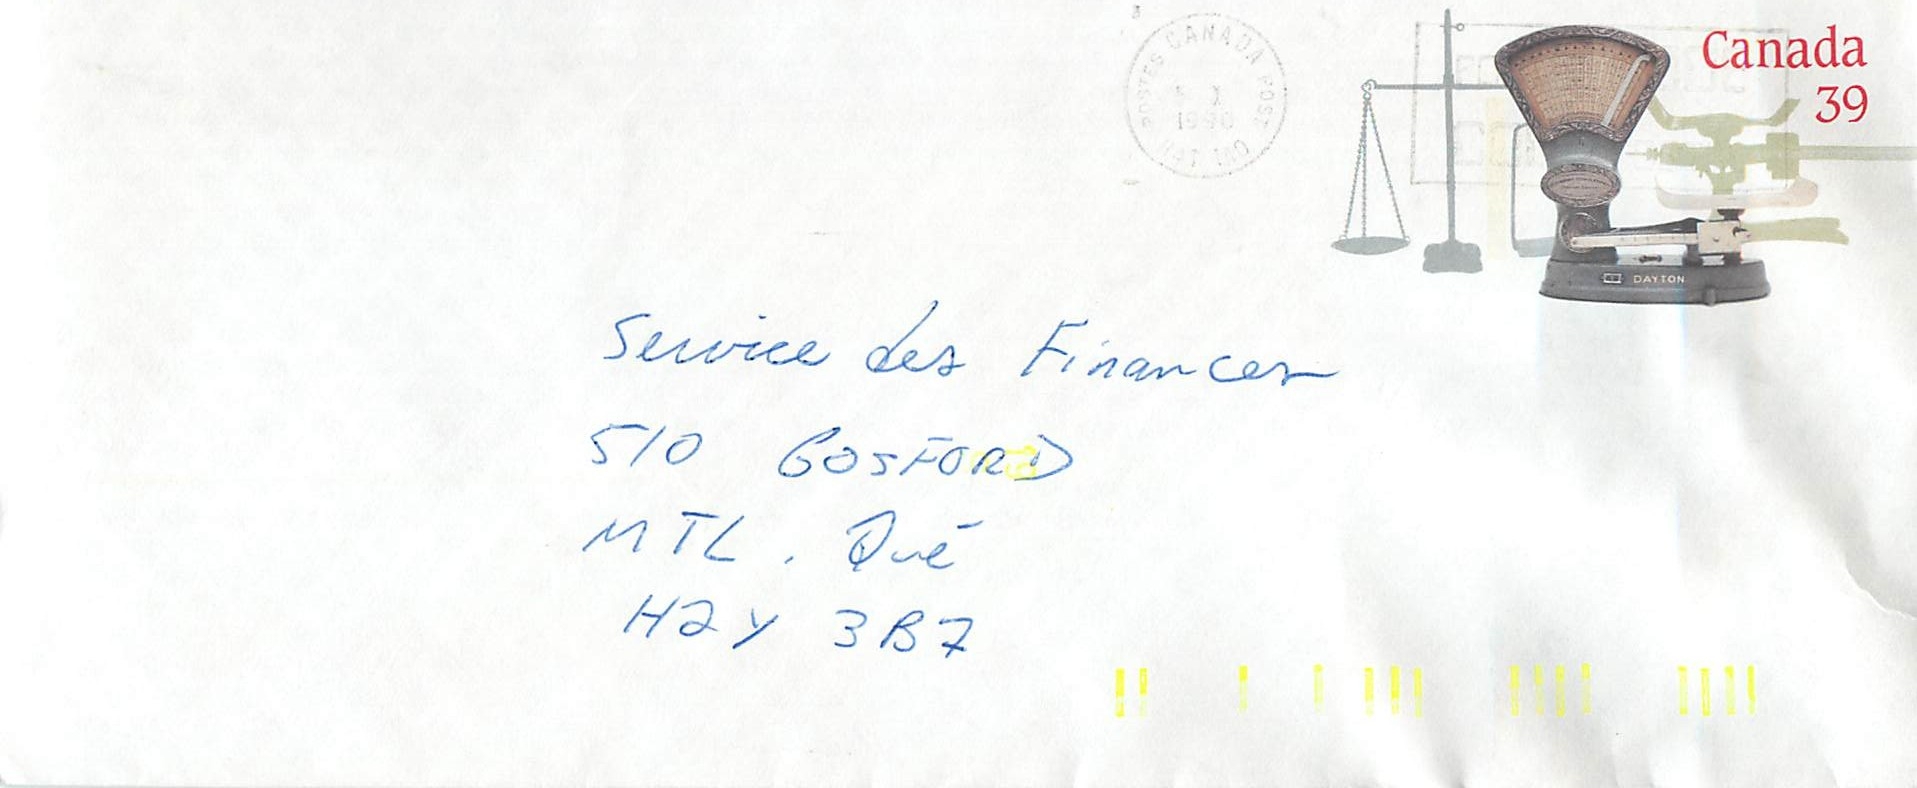 POSTES CANADA POST
1990
Canada
39
DAYTON
Service des Finances
510 GOSFORD
MTL. Qué
H2Y 3B7